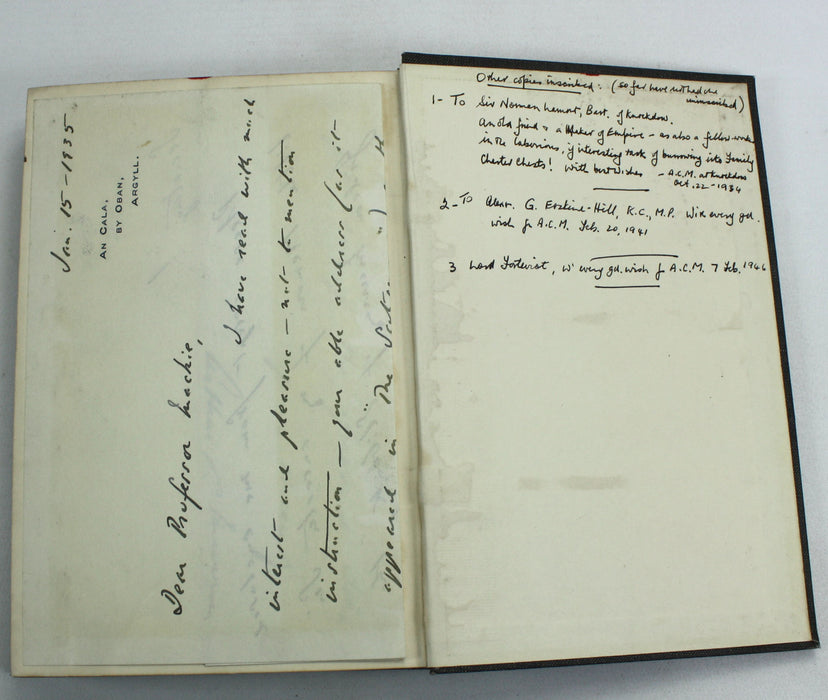 Jan. 15 - 1935
AN CALA,
BY OBAN,
ARGYLL.
Dear Professor Mackie,
I have read with much
interest and pleasure - not to mention
instruction - your able address (as it
appeared in "The
Other copies inscribed: (so far have not had one
uninscribed)
1 - To Sir Norman Lamont, Bart. of Knockdow.
An old friend & a Maker of Empire - as also a fellow-worker
in the laborious, if interesting task of burrowing into Family
Charter Chests! With best wishes - A.C.M. at Knockdow
Oct. 22 - 1934
2 - To Alexr. G. Erskine-Hill, K.C., M.P. With every gd.
wish fr A.C.M. Feb. 20, 1941
3 Lord Forteviot, w' every gd. wish fr A.C.M. 7 Feb. 1946